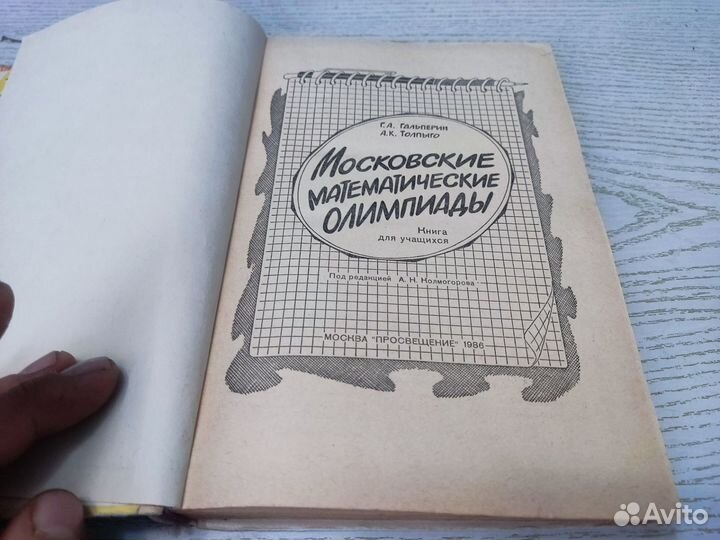 Г.А. Гальперин
А.К. Толпыго
Московские
математические
олимпиады
Книга
для учащихся
Под редакцией А. Н. Колмогорова
МОСКВА "ПРОСВЕЩЕНИЕ" 1986
Avito